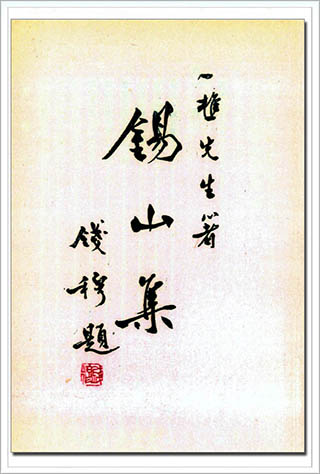 一樵先生著
錫山集
錢穆題